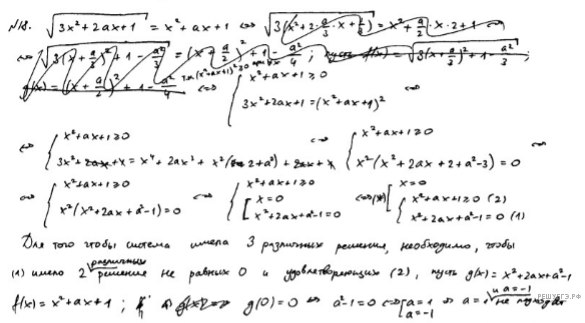 №18. √(3x²+2ax+1) = x²+ax+1 ⇔ √(3(x²+2·a/3·x+1/3)) = x²+a/2·x·2+1 ⇔
⇔ √(3(x+a/3)²+1-a²/3) = (x+a/2)²+1-a²/4; пусть f(x)=√(3(x+a/3)²+1-a²/3);
g(x)=(x+a/2)²+1-a²/4 ⇔ { x²+ax+1≥0
3x²+2ax+1=(x²+ax+1)² ⇔
⇔ { x²+ax+1≥0 ⇔ { x²+ax+1≥0 ⇔
3x²+2ax+1=x⁴+2ax³+x²(2+a²)+2ax+1 x²(x²+2ax+2+a²-3)=0
⇔ { x²+ax+1≥0 ⇔ { x²+ax+1≥0 ⇔(*) [ x=0
x²(x²+2ax+a²-1)=0 [ x=0 { x²+ax+1≥0 (2)
x²+2ax+a²-1=0 x²+2ax+a²-1=0 (1)
Для того чтобы система имела 3 различных решения, необходимо, чтобы
(1) имело 2 различных решения не равных 0 и удовлетворяющих (2), пусть g(x)=x²+2ax+a²-1
f(x)=x²+ax+1; g(0)=0 ⇔ a²-1=0 ⇔ [a=1 a=-1 ⇒ a=1 и a=-1 не подходят
РЕШУЕГЭ.РФ